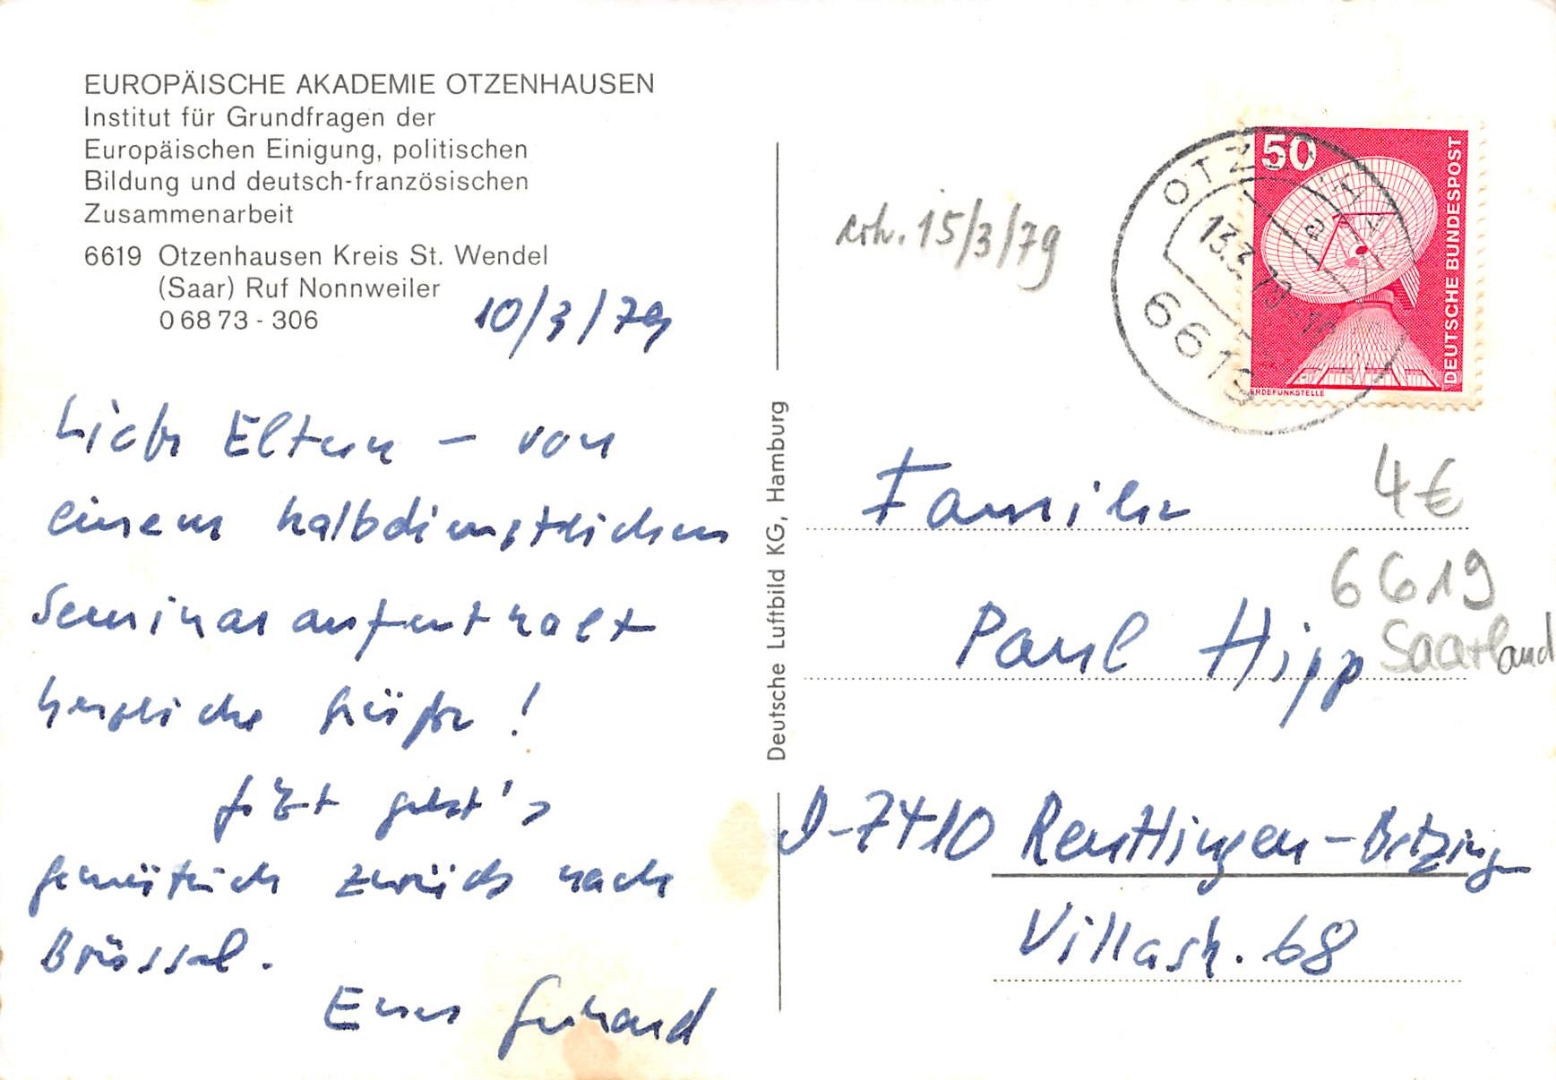 EUROPÄISCHE AKADEMIE OTZENHAUSEN
Institut für Grundfragen der
Europäischen Einigung, politischen
Bildung und deutsch-französischen
Zusammenarbeit
6619 Otzenhausen Kreis St. Wendel
(Saar) Ruf Nonnweiler
0 68 73 - 306
10/3/79
Liebe Eltern – von
einem halbdienstlichen
Seminaraufenthalt
herzliche Grüße!
Jetzt geht's
gemütlich zurück nach
Brüssel.
Euer Gerhard
Deutsche Luftbild KG, Hamburg
erh. 15/3/79
50
DEUTSCHE BUNDESPOST
ERDEFUNKSTELLE
13.3.79
6619
4€
Familie
6619
Saarland
Paul Hipp
D-7410 Reuttingen-Betzingen
Villastr. 68